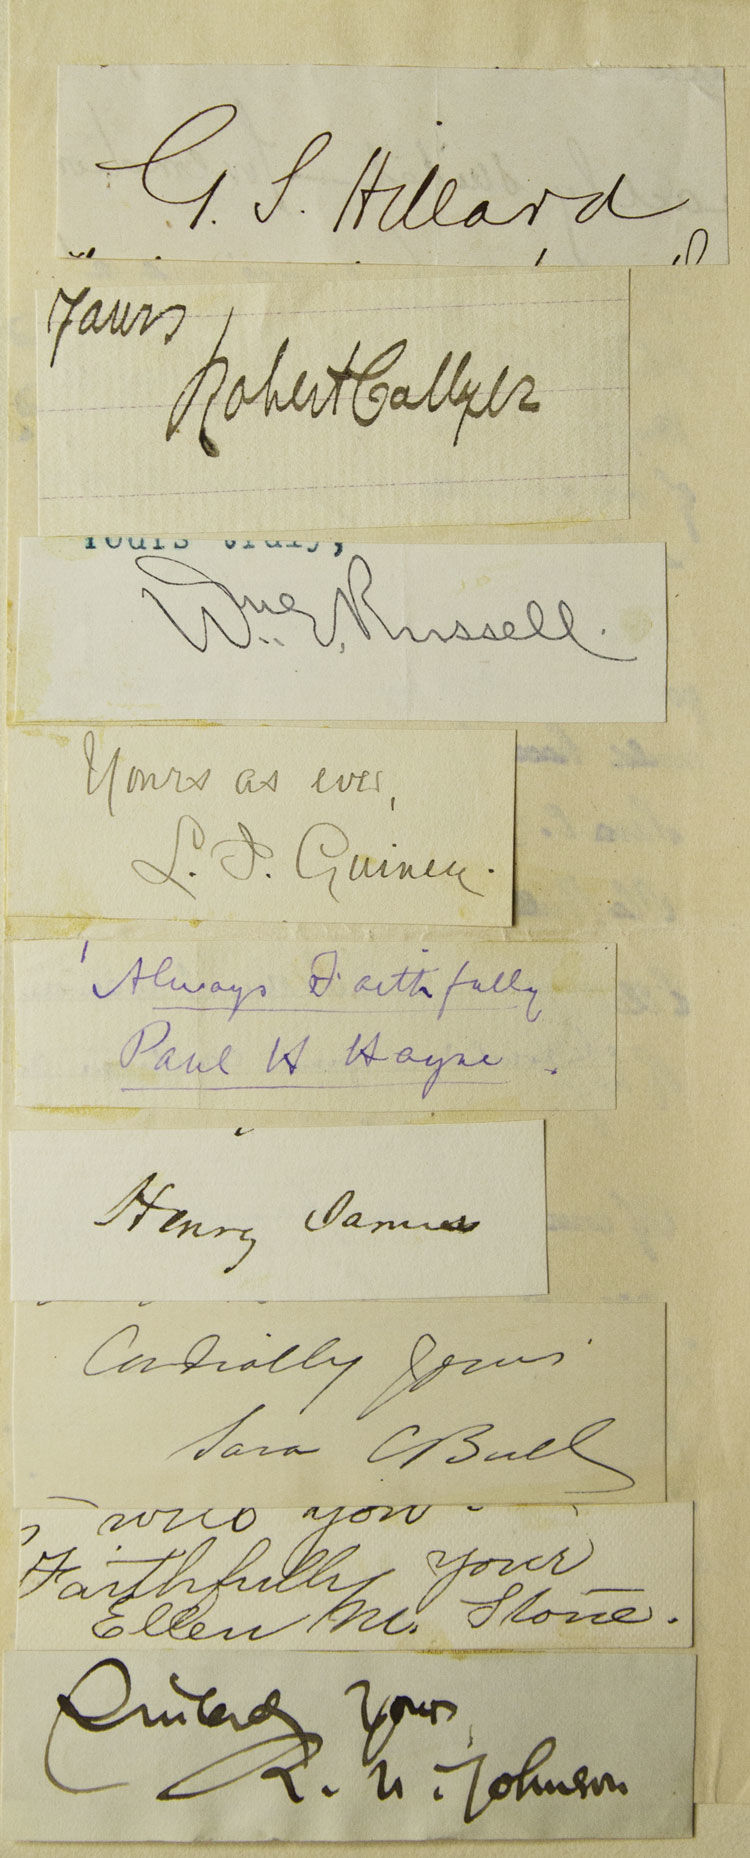 G. S. Hillard
Yours
Robert Collyer
Yours truly,
Wm. E. Russell.
Yours as ever,
L. I. Guiney.
Always Faithfully
Paul H Hayne.
Henry James
Cordially yours
Sara C Bull
you.
Faithfully your
Ellen M. Stone.
Sincerely Yours,
R. U. Johnson